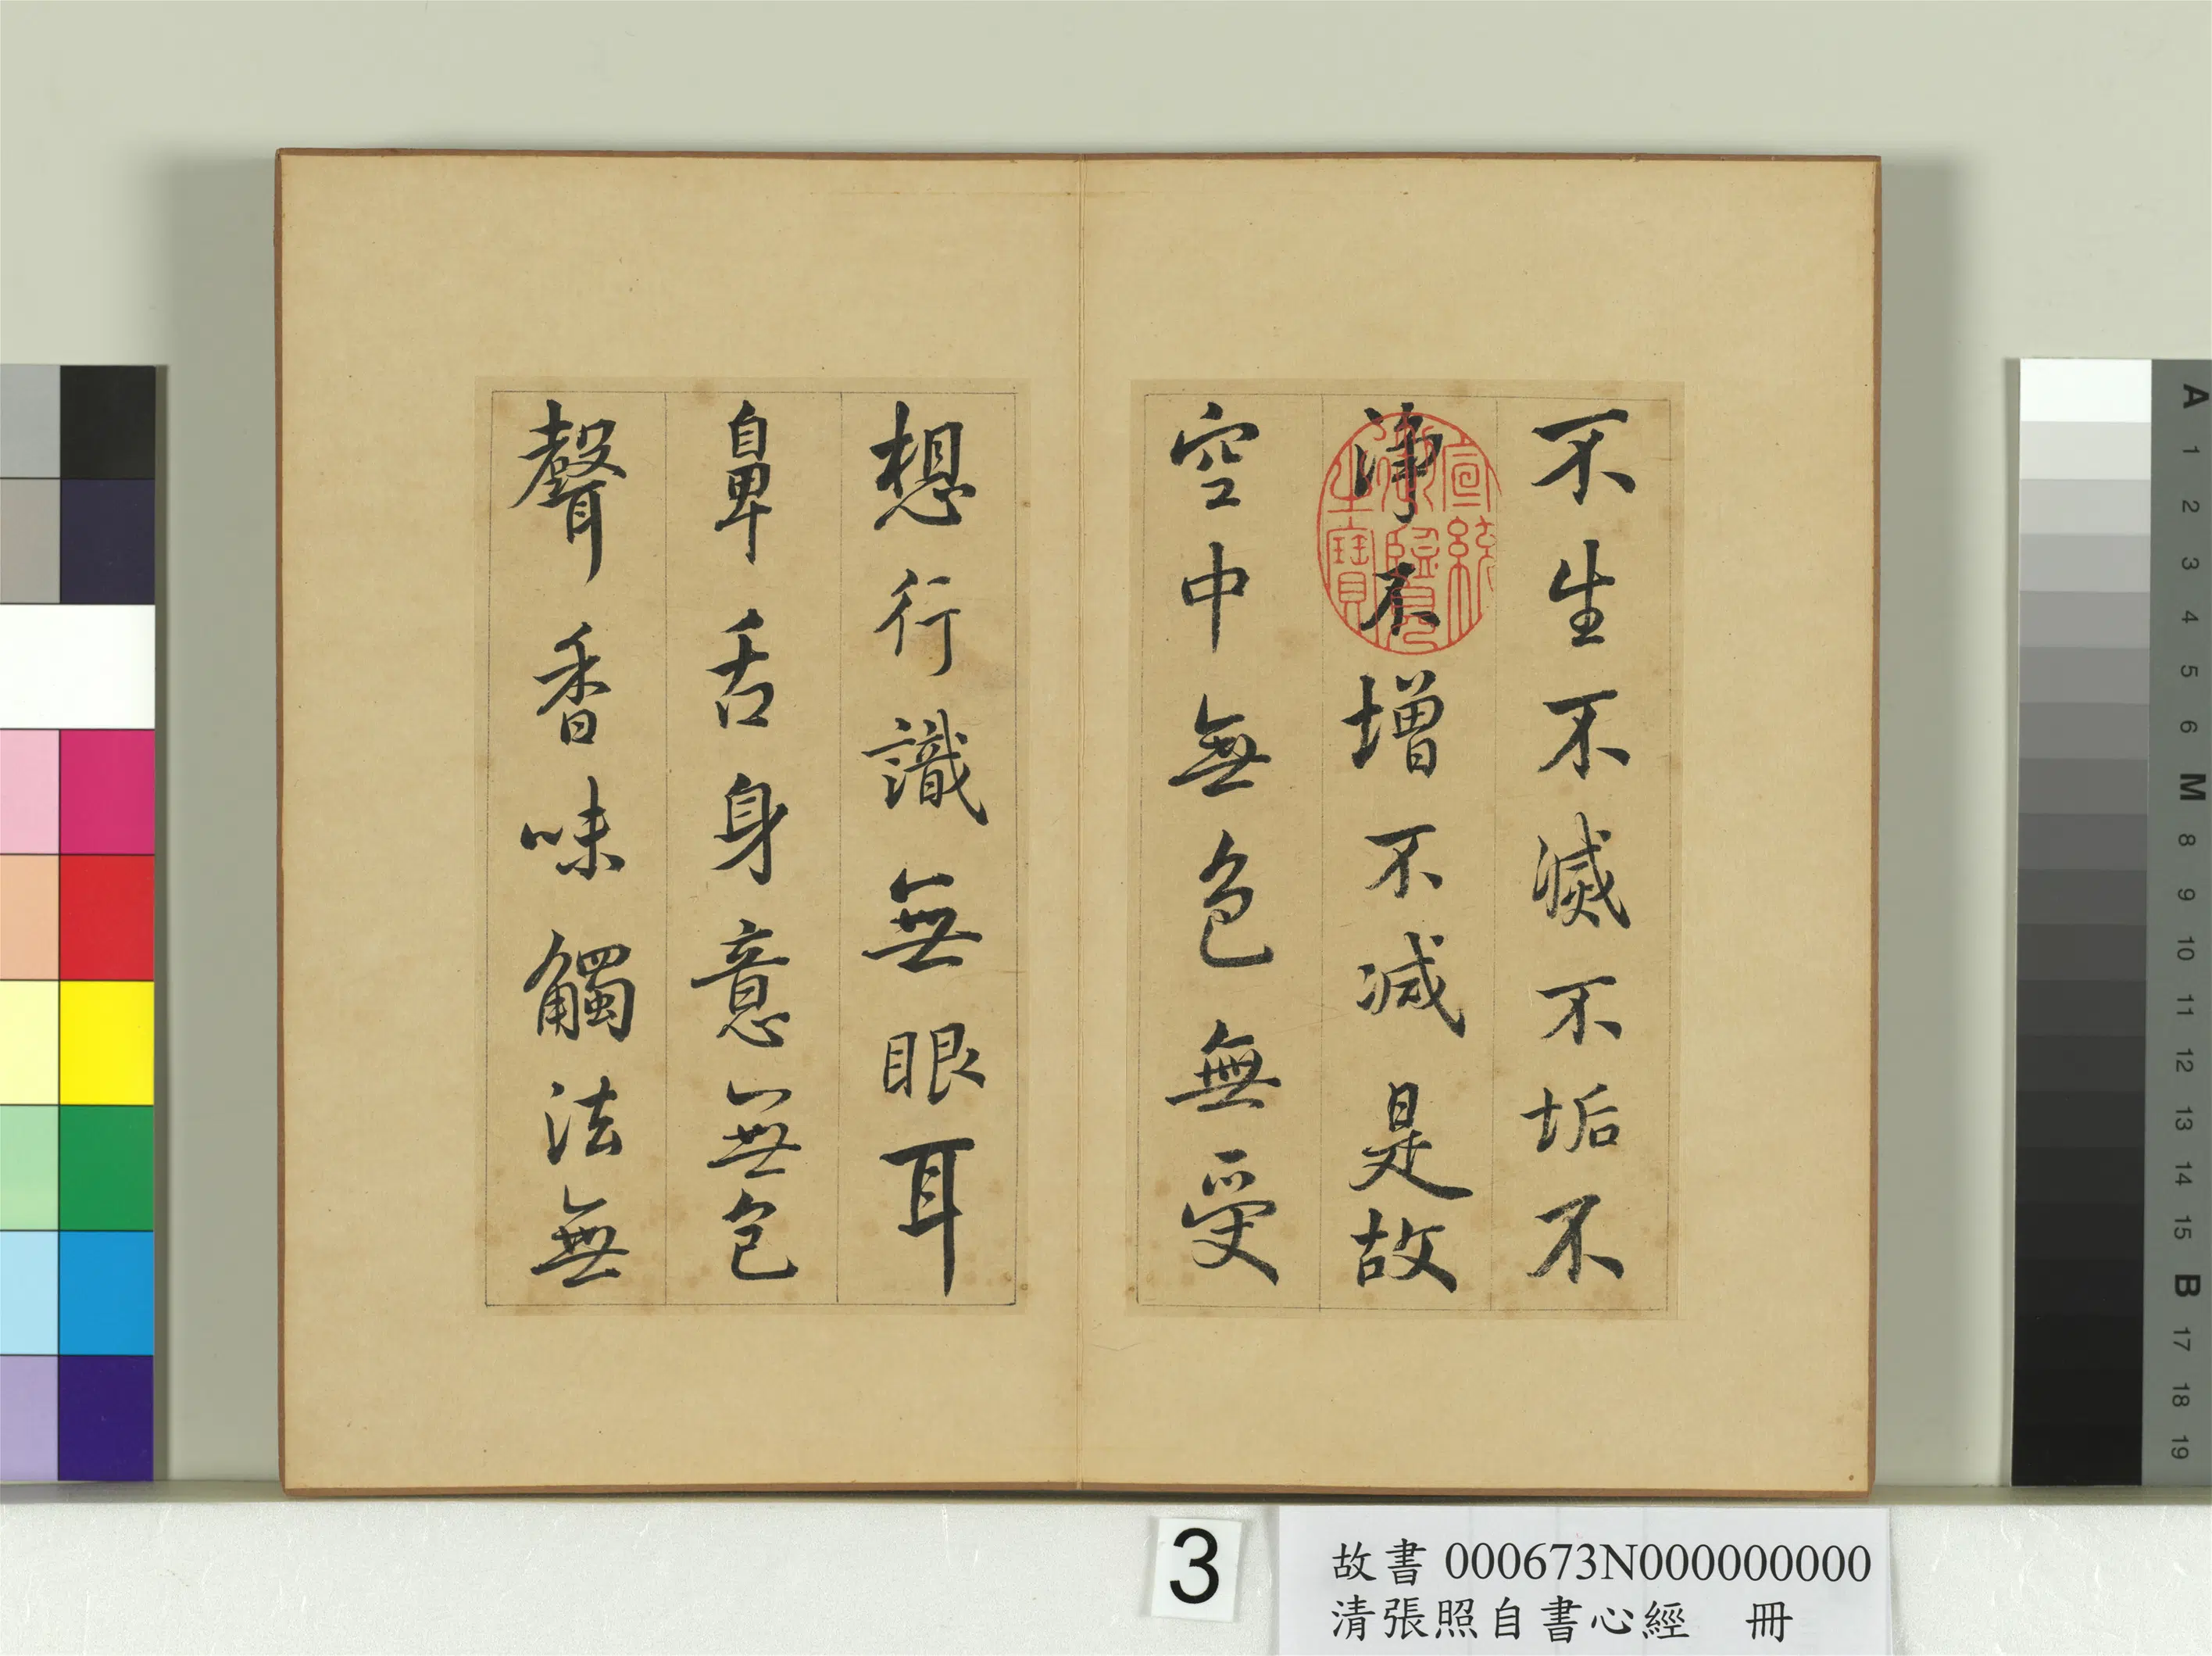 不生不滅不垢不
淨不增不減是故
空中無色無受
想行識無眼耳
鼻舌身意無色
聲香味觸法無
宣統御覽之寶
3
故書 000673N000000000
清張照自書心經 冊
A 1 2 3 4 5 6 M 8 9 10 11 12 13 14 15 B 17 18 19